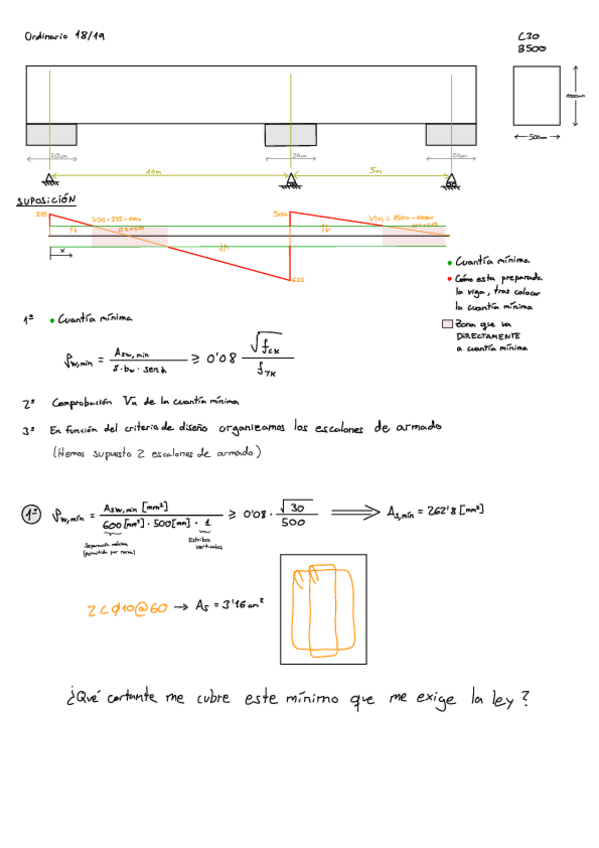 Ordinario 18/19
C30
B500
1000mm
500mm
20cm
20cm
20cm
10m
5m
SUPOSICIÓN
375
V(x)=375-100x
500
x
625
• Cuantía mínima
• Cómo esta preparada
la viga, tras colocar
la cuantía mínima
Zona que va
DIRECTAMENTE
a cuantía mínima
1º • Cuantía mínima
ρw,mín = Asw,min / s·bw·senα ≥ 0'08 √fck / fyk
2º Comprobación Vu de la cuantía mínima
3º En función del criterio de diseño organizamos los escalones de armado
(Hemos supuesto 2 escalones de armado)
1º ρw,mín = Asw,min [mm²] / 600[mm²]·500[mm]·1 ≥ 0'08 · √30 / 500 ⟹ As,mín = 262'8 [mm²]
Separación máxima
(permitida por norma)
Estribos
verticales
2C∅10@60 → As = 3'16 cm²
¿Qué cortante me cubre este mínimo que me exige la ley?